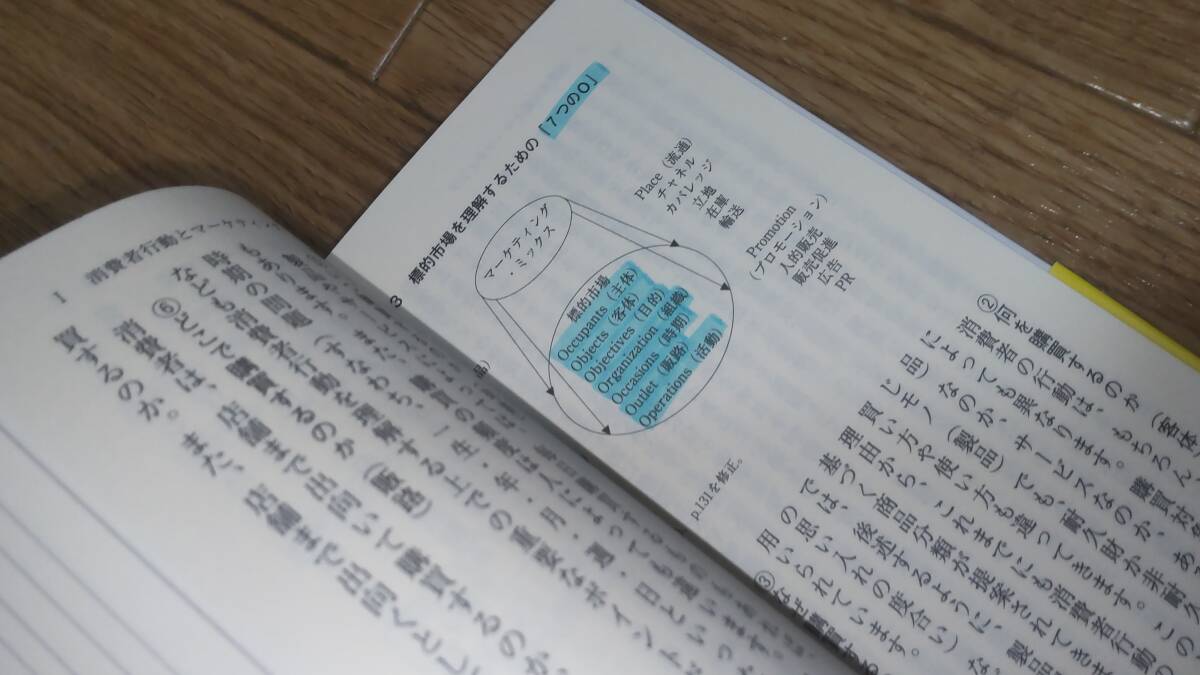 3 標的市場を理解するための「7つのO」
マーケティング
・ミックス
標的市場
Occupants（主体）
Objects（客体）
Objectives（目的）
Organization（組織）
Occasions（時期）
Outlet（販路）
Operations（活動）
Place（流通）
チャネル
カバレッジ
立地
在庫
輸送
Promotion
（プロモーション）
人的販売
販売促進
広告
PR
p.131を修正。
②何を購買するのか（客体
消費者の行動は、もちろん、
によっても異なります。
じモノ
買い方や使い方も違ってきます。
理由から、これまでにも消費者行動の
基づく商品分類が提案されてきま
では、後述するように、製品
の思い入れの度合い）な
用いられています。
Ⅰ 消費者行動とマーケティン
もあります。また、
時期の問題（すなわち、
なども消費者行動を理解する上での重要なポイント
⑥どこで購買するのか（販路）
消費者は、店舗まで出向いて購買するのか、
買するのか。また、店舗まで出向くとし